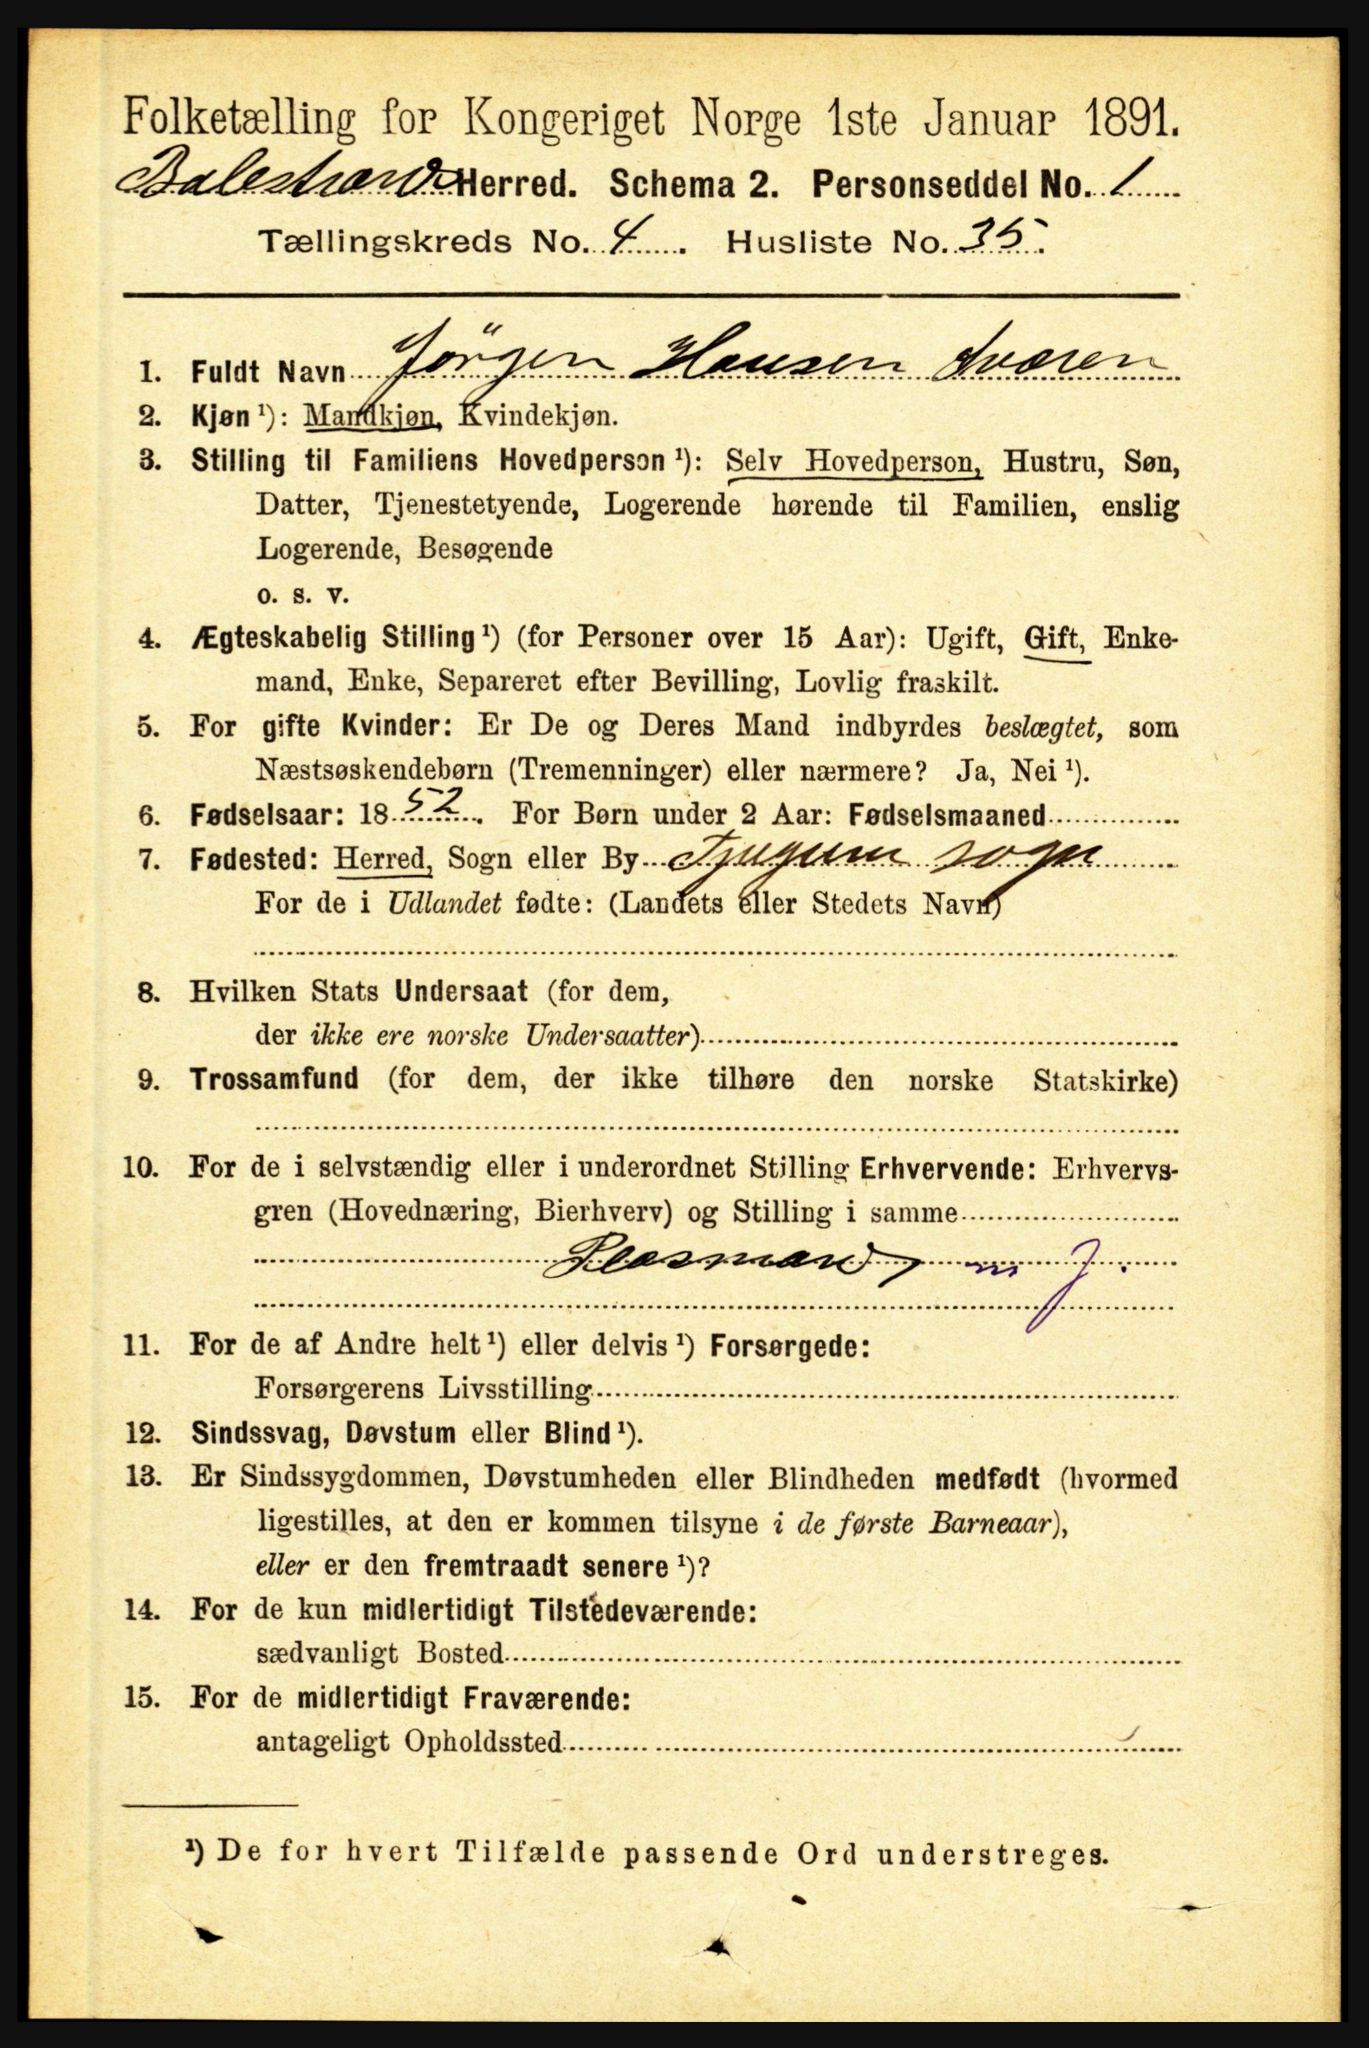 Folketælling for Kongeriget Norge 1ste Januar 1891.
Balestrand Herred. Schema 2. Personseddel No. 1
Tællingskreds No. 4. Husliste No. 35.
1. Fuldt Navn Jörgen Hansen Sværen
2. Kjøn ¹): Mandkjøn, Kvindekjøn.
3. Stilling til Familiens Hovedperson ¹): Selv Hovedperson, Hustru, Søn,
Datter, Tjenestetyende, Logerende hørende til Familien, enslig
Logerende, Besøgende
o. s. v.
4. Ægteskabelig Stilling ¹) (for Personer over 15 Aar): Ugift, Gift, Enke-
mand, Enke, Separeret efter Bevilling, Lovlig fraskilt.
5. For gifte Kvinder: Er De og Deres Mand indbyrdes beslægtet, som
Næstsøskendebørn (Tremenninger) eller nærmere? Ja, Nei ¹).
6. Fødselsaar: 1852. For Børn under 2 Aar: Fødselsmaaned
7. Fødested: Herred, Sogn eller By Tjugum sogn
For de i Udlandet fødte: (Landets eller Stedets Navn)
8. Hvilken Stats Undersaat (for dem,
der ikke ere norske Undersaatter)
9. Trossamfund (for dem, der ikke tilhøre den norske Statskirke)
10. For de i selvstændig eller i underordnet Stilling Erhvervende: Erhvervs-
gren (Hovednæring, Bierhverv) og Stilling i samme
Plasmand, m J.
11. For de af Andre helt ¹) eller delvis ¹) Forsørgede:
Forsørgerens Livsstilling
12. Sindssvag, Døvstum eller Blind ¹).
13. Er Sindssygdommen, Døvstumheden eller Blindheden medfødt (hvormed
ligestilles, at den er kommen tilsyne i de første Barneaar),
eller er den fremtraadt senere ¹)?
14. For de kun midlertidigt Tilstedeværende:
sædvanligt Bosted
15. For de midlertidigt Fraværende:
antageligt Opholdssted
¹) De for hvert Tilfælde passende Ord understreges.